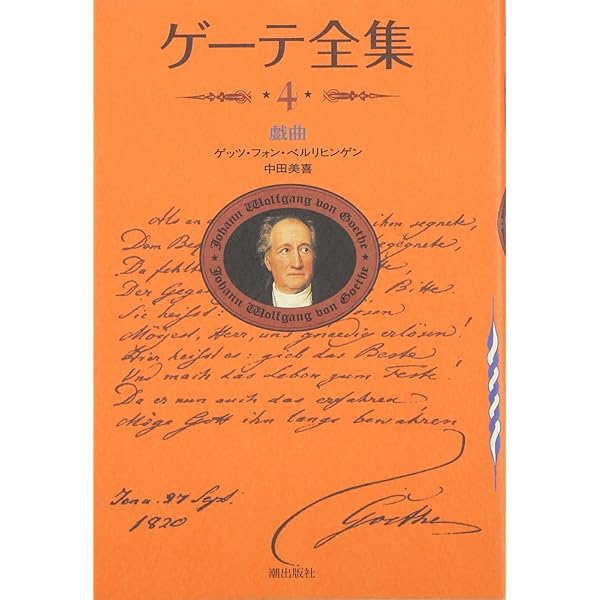 ゲーテ全集
4
戯曲
ゲッツ・フォン・ベルリヒンゲン
中田美喜
Johann Wolfgang von Goethe
Johann Wolfgang von Goethe
Als an ihm segnete,
Dem Beg gegnete,
Da fehlt
Der Gege Bitte.
Sie heisst: losen
Mögest, Herr, uns gnaedig erlösen!
Hier heisst es: gieb das Beste
Und mach das Leben zum Feste.
Da er nun auch das erfahren
Möge Gott ihn lange bewahren
Jena. 27 Sept.
1820
Goethe
潮出版社